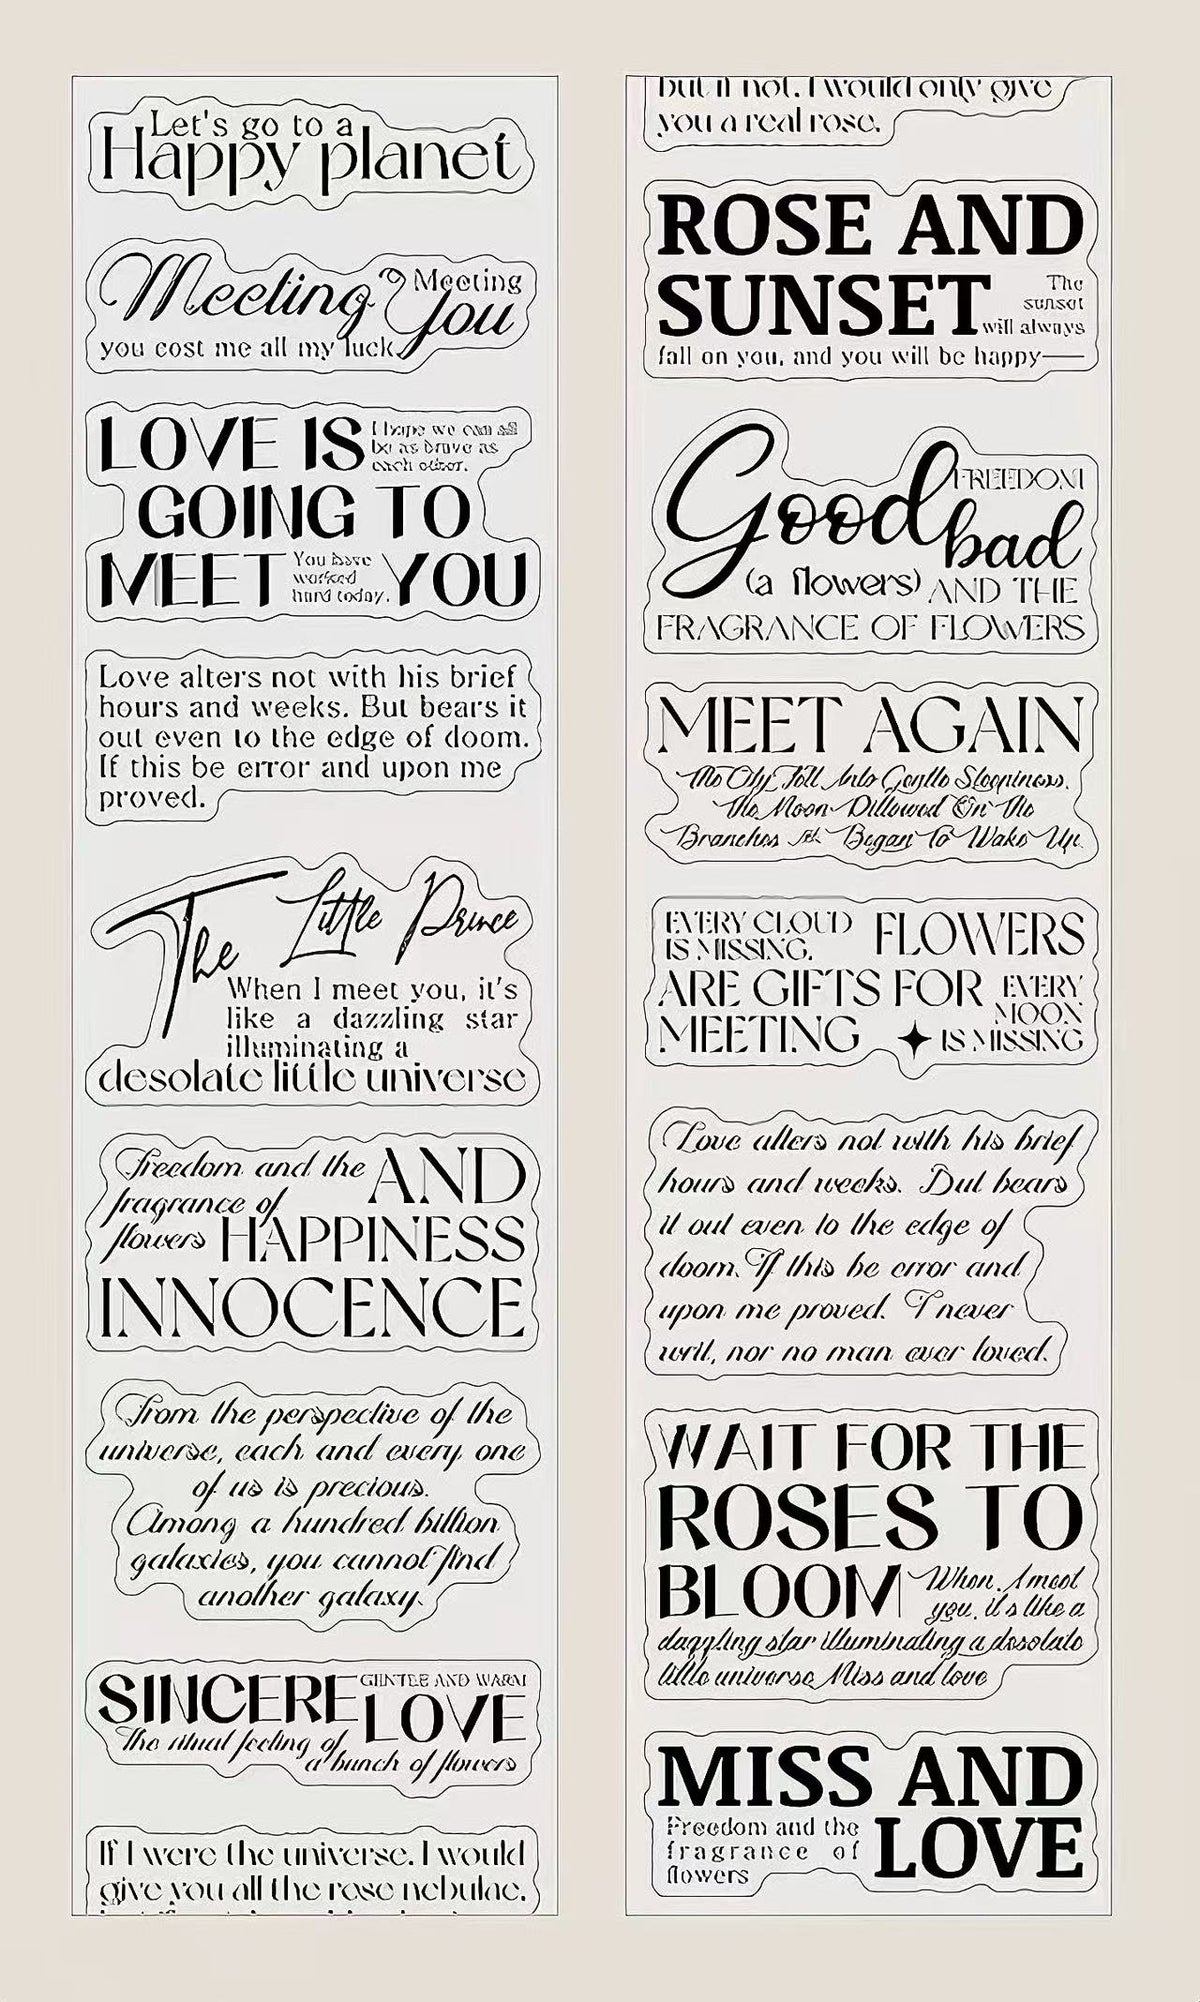 Let's go to a
Happy planet
Meeting Meeting
You
you cost me all my luck
LOVE IS I hope we can all
be as brave as
each other.
GOING TO
MEET You have
worked
hard today. YOU
Love alters not with his brief
hours and weeks. But bears it
out even to the edge of doom.
If this be error and upon me
proved.
The Little Prince
When I meet you, it's
like a dazzling star
illuminating a
desolate little universe
Freedom and the AND
fragrance of
flowers HAPPINESS
INNOCENCE
From the perspective of the
universe, each and every one
of us is precious.
Among a hundred billion
galaxies, you cannot find
another galaxy.
SINCERE GENTLE AND WARM
LOVE
The ritual feeling of
a bunch of flowers
If I were the universe. I would
give you all the rose nebulae.
but if not. I would only give
you a real rose.
ROSE AND
SUNSET The
sunset
will always
fall on you, and you will be happy—
Good FREEDOM
bad
(a flowers) AND THE
FRAGRANCE OF FLOWERS
MEET AGAIN
Fell Into Sleepiness.
The Moon On The
Branches Began To Wake Up.
EVERY CLOUD
IS MISSING. FLOWERS
ARE GIFTS FOR EVERY
MOON
MEETING IS MISSING
Love alters not with his brief
hours and weeks. But bears
it out even to the edge of
doom. If this be error and
upon me proved. I never
writ, nor no man ever loved.
WAIT FOR THE
ROSES TO
BLOOM When I meet
you, it's like a
dazzling star illuminating a desolate
little universe Miss and love
MISS AND
Freedom and the
fragrance of
flowers LOVE